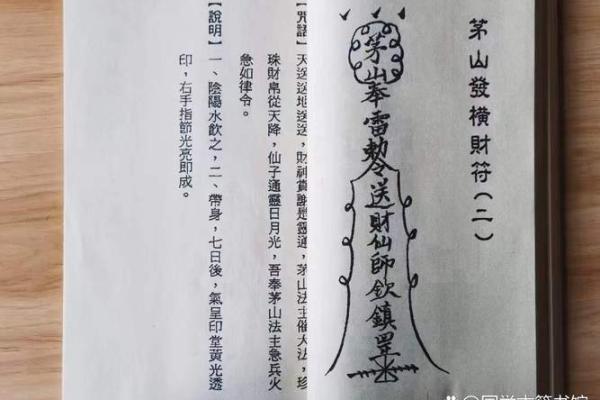 茅山發橫財符(二)
茅山奉雷勅令送財仙師欽鎮罡
【咒語】天送送地送送,財神賞謝是靈通,茅山法主催大法,珍
珠財帛從天降,仙子通靈日月光,吾奉茅山法主急兵火
急如律令。
【說明】一、陰陽水飲之,二、帶身,七日後,氣呈印堂黃光透
印,右手指節光亮即成。